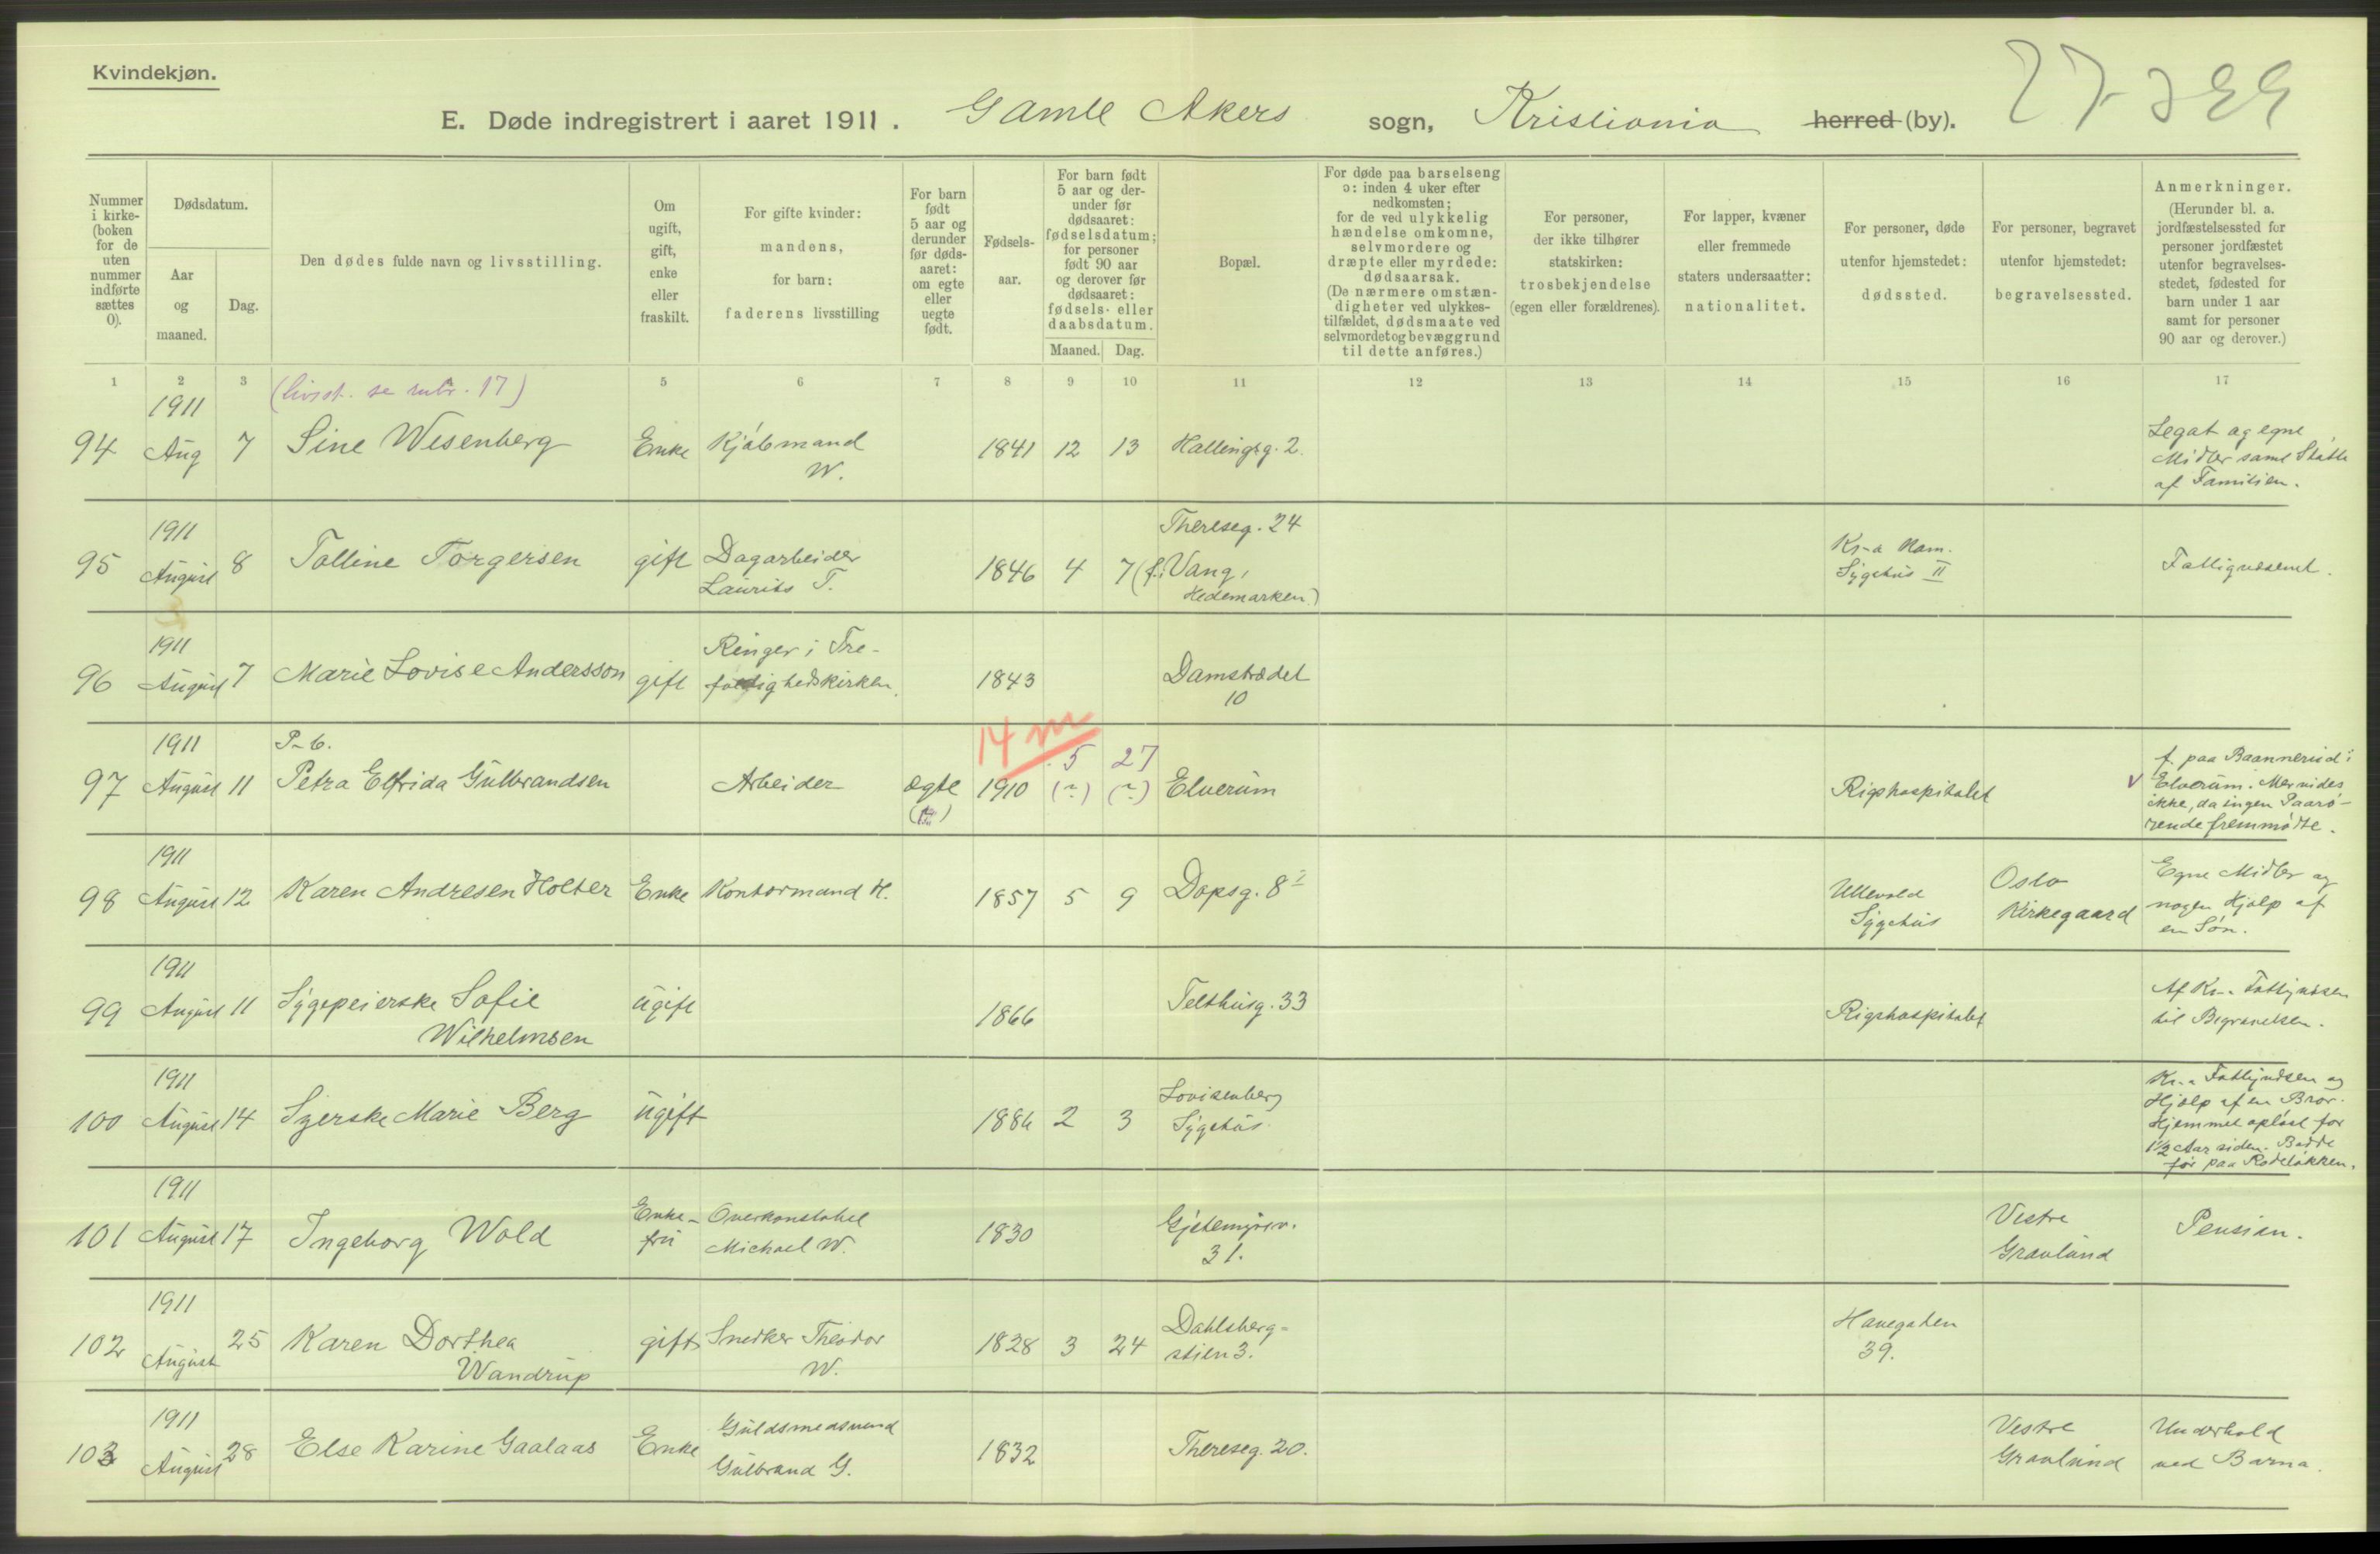 Kvindekjøn.
E. Døde indregistrert i aaret 1911. Gamle Akers sogn, Kristiania herred (by).
Nummer i kirke-(boken for de uten nummer indførte sættes 0).
Dødsdatum.
Aar og maaned.
Dag.
Den dødes fulde navn og livsstilling.
Om ugift, gift, enke eller fraskilt.
For gifte kvinder: mandens, for barn: faderens livsstilling
For barn født 5 aar og derunder før døds-aaret: om egte eller uegte født.
Fødsels-aar.
For barn født 5 aar og der-under før dødsaaret: fødselsdatum; for personer født 90 aar og derover før dødsaaret: fødsels- eller daabsdatum.
Maaned. Dag.
Bopæl.
For døde paa barselseng ɔ: inden 4 uker efter nedkomsten; for de ved ulykkelig hændelse omkomne, selvmordere og dræpte eller myrdede: dødsaarsak. (De nærmere omstæn-digheter ved ulykkes-tilfældet, dødsmaate ved selvmordet og bevæggrund til dette anføres.)
For personer, der ikke tilhører statskirken: trosbekjendelse (egen eller forældrenes).
For lapper, kvæner eller fremmede staters undersaatter: nationalitet.
For personer, døde utenfor hjemstedet: dødssted.
For personer, begravet utenfor hjemstedet: begravelsessted.
Anmerkninger. (Herunder bl. a. jordfæstelsessted for personer jordfæstet utenfor begravelses-stedet, fødested for barn under 1 aar samt for personer 90 aar og derover.)
1 2 3 5 6 7 8 9 10 11 12 13 14 15 16 17
(livsst. se rubr. 17)
94 1911 Aug 7 Sine Wesenberg Enke Kjøbmand W. 1841 12 13 Hallingsg. 2. Legat og egne Midler samt Støtte af Familien.
95 1911 August 8 Talline Torgersen gift Dagarbeider Laurits T. 1846 4 7 Thereseg. 24 (f. i Vang, Hedemarken) Kr-a Kom. Sygehus II Fattigvæsenet.
96 1911 August 7 Marie Lovise Andersson gift Ringer i Tre-foldighedskirken. 1843 Damstrædet 10
97 1911 August 11 P-b. Petra Elfrida Gulbrandsen Arbeider ægte 14 m 1910 5 (?) 27 (?) Elverum Rigshospitalet f. paa Baannerud i Elverum. Mer vides ikke, da ingen Paarø-rende fremmødte.
98 1911 August 12 Karen Andresen Holter Enke Kontormand H. 1857 5 9 Dopsg. 8 I Ullevold Sygehus Oslo Kirkegaard Egne Midler og nogen Hjælp af en Søn.
99 1911 August 11 Sygepleierske Sofie Wilhelmsen ugift 1866 Telthusg. 33 Rigshospitalet Af Kr-a Fattigvæsen til Begravelsen.
100 1911 August 14 Syerske Marie Berg ugift 1886 2 3 Lovisenberg Sygehus Kr-a Fattigvæsen og Hjælp af en Bror. Hjemmet opløst for 1½ Aar siden. Bodde før paa Rodeløkken.
101 1911 August 17 Ingeborg Wold Enke-fru Overkonstabel Michael W. 1830 Gjetemyrsv. 31. Vestre Gravlund Pension.
102 1911 August 25 Karen Dorthea Wandrup gift Snedker Theodor W. 1828 3 24 Dahlsberg-stien 3. Havegaten 39.
103 1911 August 28 Else Karine Gaalaas Enke Guldsmedsvend Gulbrand G. 1832 Thereseg. 20. Vestre Gravlund Underhold ved Barna.